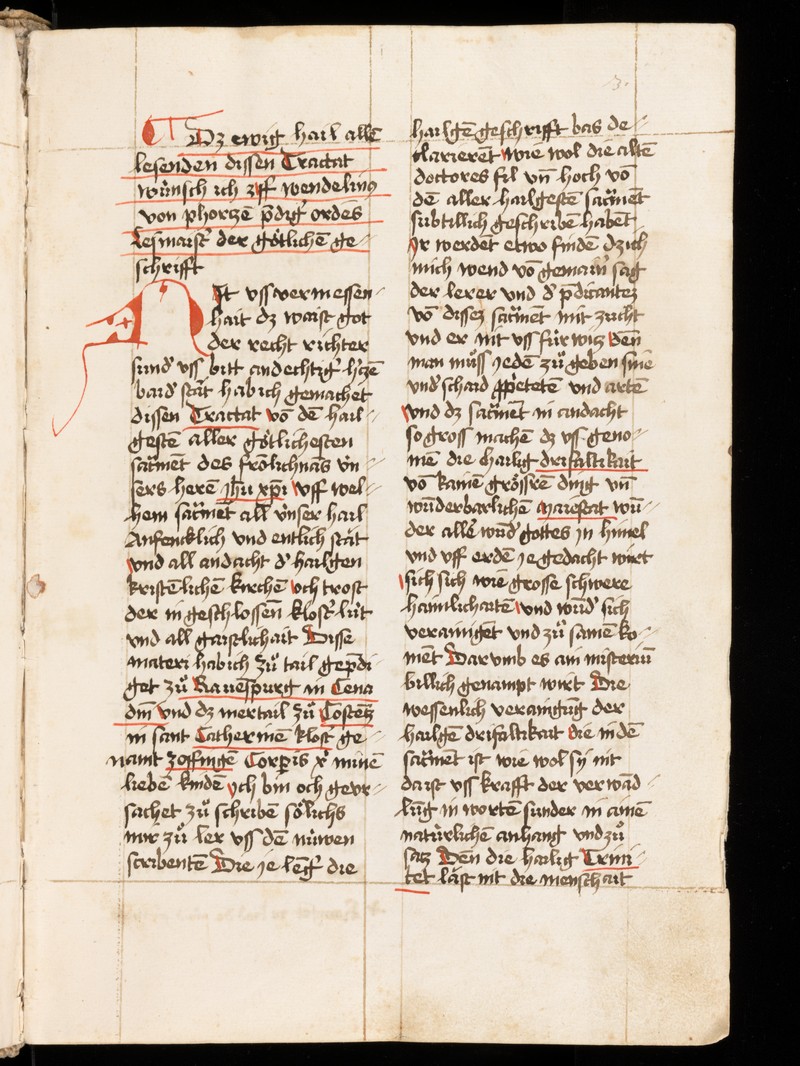 3.
Dz ewig hail allē
lesenden dissen Tractat
wünsch ich
von phorzē p̄dig͛ ordēs
lesmaist͛ der götlichē ge⸗
schrifft
Nit vss vermessen⸗
hait dz waist got
der recht richter
sund͛ vss bitt andechtig͛ h͛zē
bar͛ stāt hab ich gemachet
dissen Tractat vō dē hail⸗
gestē aller götlichesten
sac͛mēt des frōlichnās vn̄⸗
sers herē jh̄u xp̄i vff wel⸗
hem sac͛mēt all vnser hail
Anfencklich vnd entlich stāt
vnd all andacht d͛ hailgen
kristēlichē kirchē och trost
der in geschlossen klost͛ lüt
vnd all gaistlichait Disse
materi hab ich zů tail gep̄di⸗
get zů Rauespurg in Cena
dm̄ vnd dz mertail zů Costētz
in sant Catherinē klost͛ ge⸗
namt zoffingē Corp̄is minē
liebē kindē ich bin och gevr⸗
sachet zů schribē sölichs
mir zů ler vss dē nüwen
scribentē Die ie leng͛ die
hailgē geschrifft bas de⸗
clarierēt wie wol die altē
doctores fil vn̄ hoch vō
dē aller hailgestē sac͛mēt
subtillich geschribē habēt
Ir werdet etwo findē dz ich
mich wend vō gemain͛ sag
der lerer vnd d͛ p̄dicantē
vō dissē sac͛mēt mit zucht
vnd er nit vss fürwitz Dēn
man můss iedē zů gebē sine
vnd͛ schaid vnd artē
vnd dz sac͛mēt in andacht
so gross machē dz vss geno⸗
mē die hailig drifaltikait
vō kainē grössrē ding vn̄
wunderbarlichē maiestat wū⸗
der allē wūd͛ gottes in himel
vnd vff erdē ie gedacht wirt
sich sich wie grosse schwere
haimlichaitē vnd wūd͛ sich
verainiget vnd zů samē ko⸗
mēt Darumb es ain misteriū
billich genampt wirt Die
wessenlich verainigūg der
hailgē drifaltikait die in dē
sac͛mēt ist wie wol sy nit
da ist vss krafft der verwād⸗
lūg in wortē sunder in ainē
natürlichē anhang vnd zů
satz Dēn die hailig Trini⸗
tet lāst nit die menschait